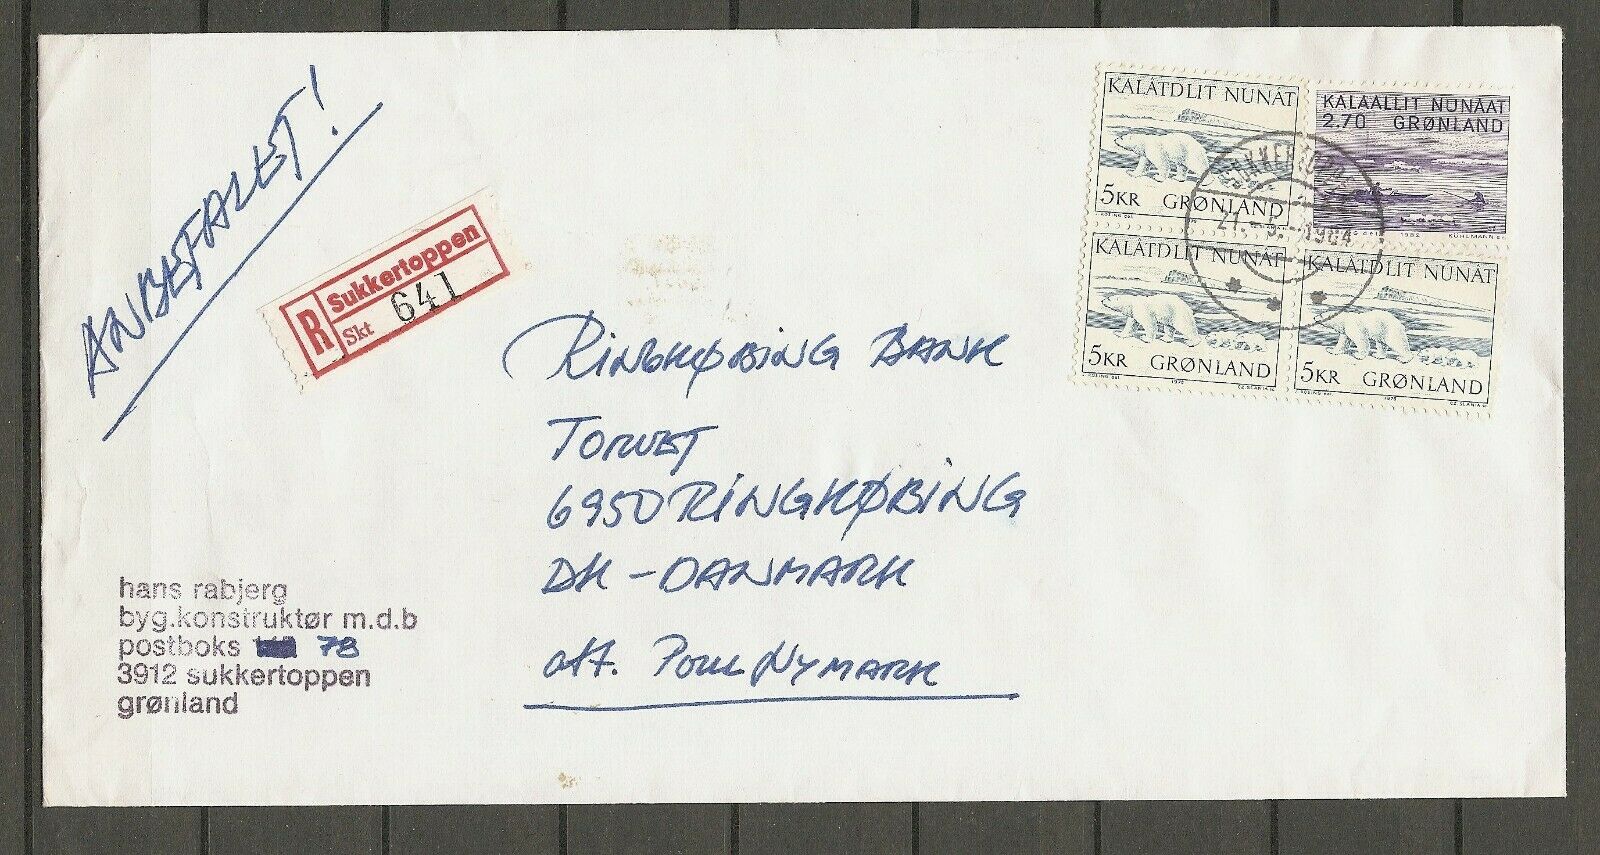 ANBEFALET!
R
Sukkertoppen
Skt 641
KALÂTDLIT NUNÂT
5KR GRØNLAND
KALAALLIT NUNAAT
2.70 GRØNLAND
1982
KALÂTDLIT NUNÂT
5KR GRØNLAND
KALÂTDLIT NUNÂT
5KR GRØNLAND
1984
RINGKØBING BANK
TORVET
6950 RINGKØBING
DK - DANMARK
att. Poul NYMARK
hans rabjerg
byg.konstruktør m.d.b
postboks 78
3912 sukkertoppen
grønland